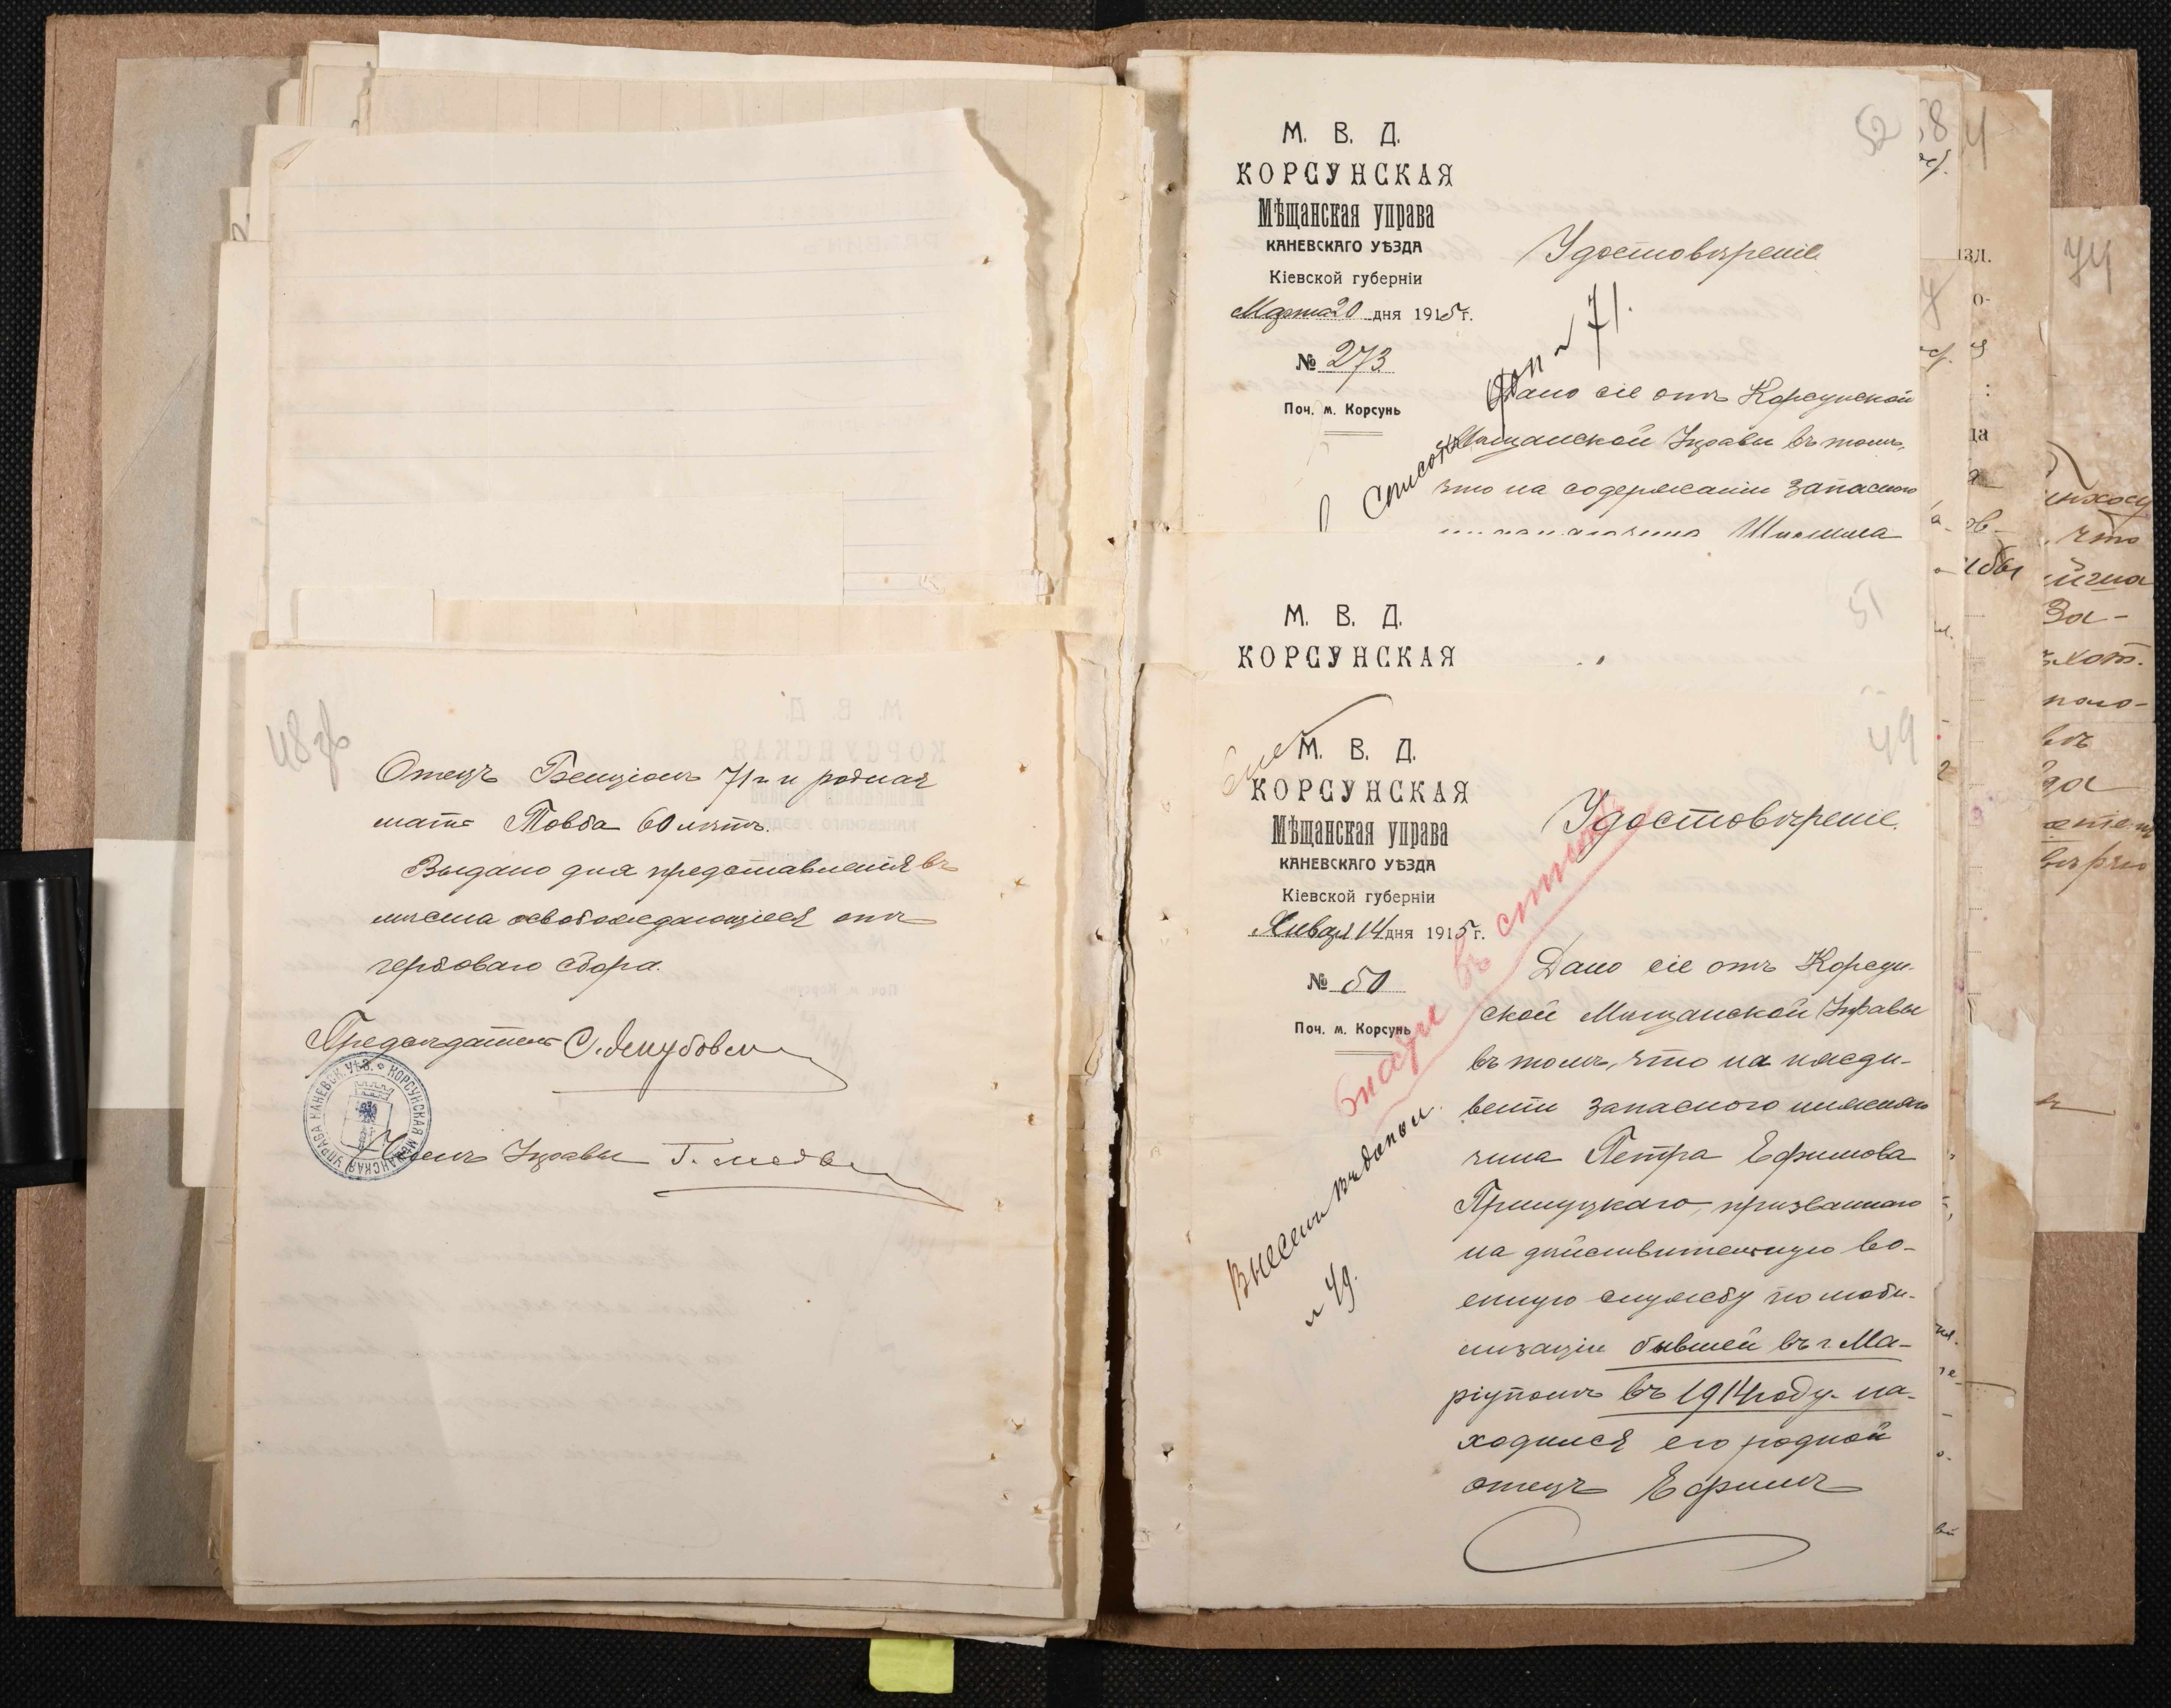 48 об
Отецъ Бенціонъ 71 г и родная
мать Товба 60 лѣтъ.
Выдано для представленія въ
мѣста освобождающіеся отъ
гербоваго сбора.
Предсѣдатель
КОРСУНСКАЯ МѢЩАНСКАЯ УПРАВА КАНЕВСК. УѢЗ.
Членъ Управы
52
М. В. Д.
КОРСУНСКАЯ
Мѣщанская управа
КАНЕВСКАГО УѢЗДА
Кіевской губерніи
Марта 20 дня 1915 г.
№ 273
Поч. м. Корсунь
Удостовѣреніе
71.
Дано сіе отъ Корсунской
Мѣщанской Управы въ томъ,
что на содержаніи запасного
51
М. В. Д.
КОРСУНСКАЯ
49
М. В. Д.
КОРСУНСКАЯ
Мѣщанская управа
КАНЕВСКАГО УѢЗДА
Кіевской губерніи
Января 14 дня 1915 г.
№ 50
Поч. м. Корсунь
Удостовѣреніе.
Дано сіе отъ Корсун-
ской Мѣщанской Управы
въ томъ, что на ижди-
веніи запасного нижняго
чина Петра Ефимова
Прилуцкаго, призваннаго
на дѣйствительную во-
енную службу по моби-
лизаціи бывшей въ г. Ма-
ріуполѣ въ 1914 году на-
ходился его родной
отецъ Ефимъ
Внесенъ въ допол.
49.
74